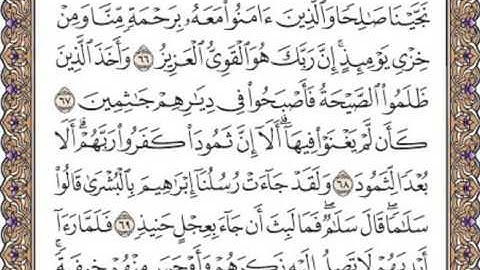 نَجَّيْنَا صَٰلِحًا وَٱلَّذِينَ ءَامَنُوا۟ مَعَهُۥ بِرَحْمَةٍ مِّنَّا وَمِنْ
خِزْىِ يَوْمِئِذٍ ۗ إِنَّ رَبَّكَ هُوَ ٱلْقَوِىُّ ٱلْعَزِيزُ ٦٦ وَأَخَذَ ٱلَّذِينَ
ظَلَمُوا۟ ٱلصَّيْحَةُ فَأَصْبَحُوا۟ فِى دِيَٰرِهِمْ جَٰثِمِينَ ٦٧
كَأَن لَّمْ يَغْنَوْا۟ فِيهَآ ۗ أَلَآ إِنَّ ثَمُودَا۟ كَفَرُوا۟ رَبَّهُمْ ۗ أَلَا
بُعْدًا لِّثَمُودَ ٦٨ وَلَقَدْ جَآءَتْ رُسُلُنَآ إِبْرَٰهِيمَ بِٱلْبُشْرَىٰ قَالُوا۟
سَلَٰمًا ۖ قَالَ سَلَٰمٌ ۖ فَمَا لَبِثَ أَن جَآءَ بِعِجْلٍ حَنِيذٍ ٦٩ فَلَمَّا رَءَآ
أَيْدِيَهُمْ لَا تَصِلُ إِلَيْهِ نَكِرَهُمْ وَأَوْجَسَ مِنْهُمْ خِيفَةً ۚ